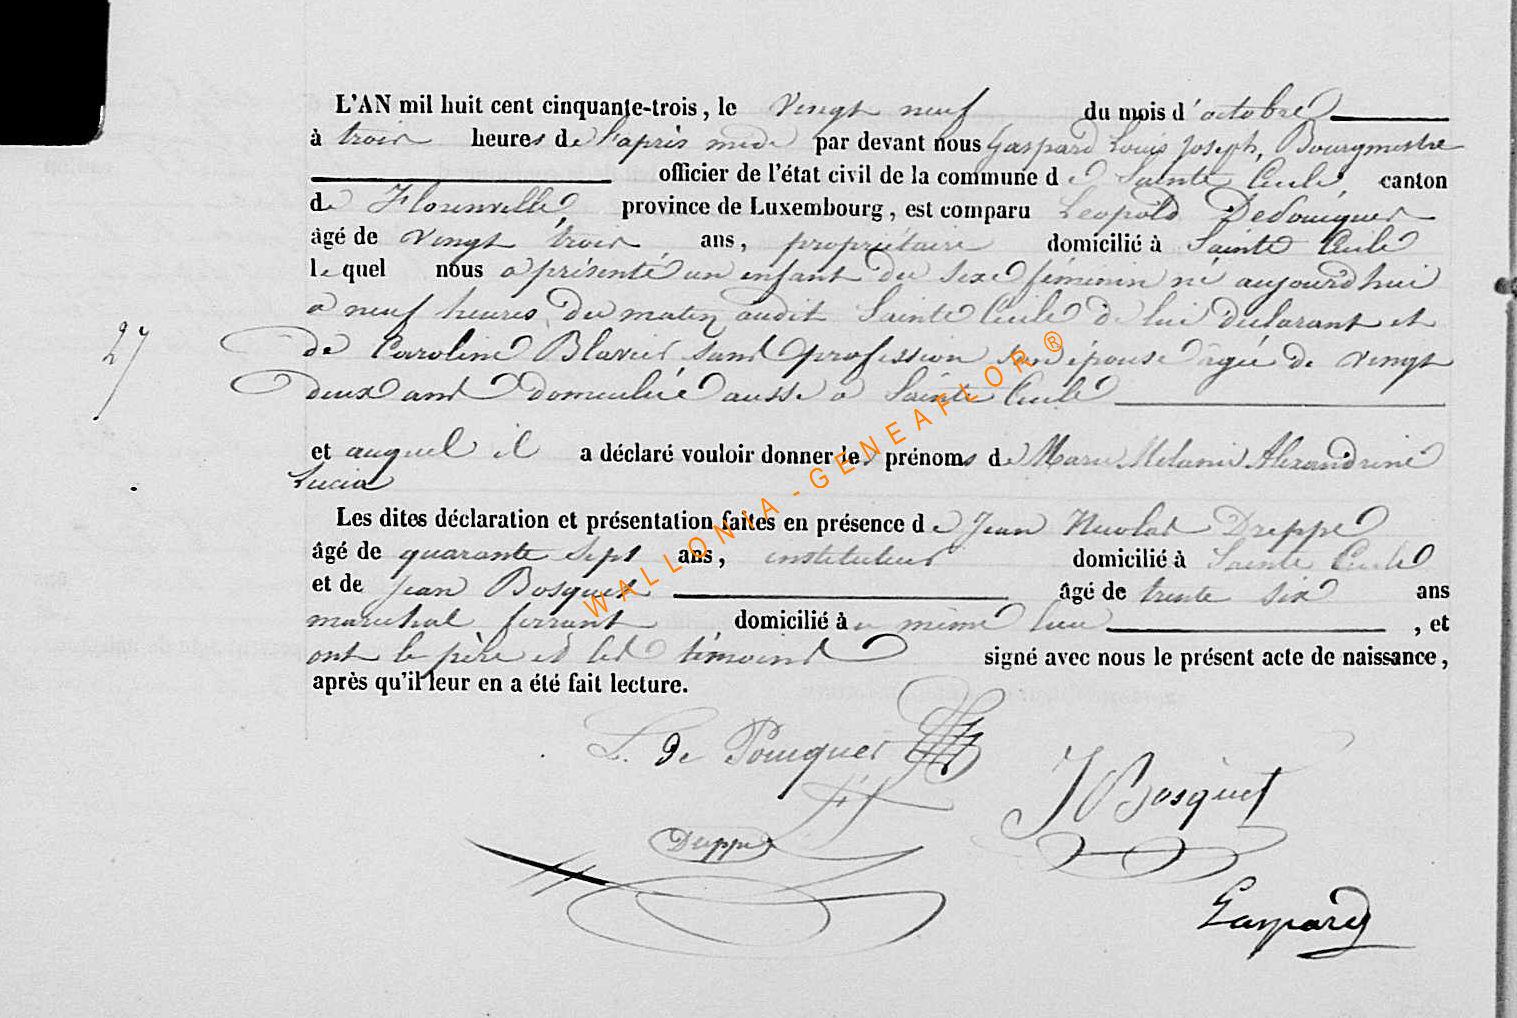 L'AN mil huit cent cinquante-trois, le Vingt neuf du mois d'octobre
à trois heures de l'après midi par devant nous Gaspard Louis Joseph, Bourgmestre
officier de l'état civil de la commune de Sainte Cecile, canton
de Florenville, province de Luxembourg, est comparu Leopold DePouiques
âgé de vingt trois ans, propriétaire domicilié à Sainte Cecile
lequel nous a présenté un enfant du sexe féminin né aujourd'hui
a neuf heures du matin audit Sainte Cecile de lui déclarant et
27
de Caroline Blavier sans profession son épouse agée de vingt
deux ans domiciliée aussi a Sainte Cecile
et auquel il a déclaré vouloir donner les prénoms de Marie Melanie Alexandrine
Lucie
Les dites déclaration et présentation faites en présence de Jean Nicolas Dreppe
âgé de quarante sept ans, instituteur domicilié à Sainte Cecile
et de Jean Bosquet âgé de trente six ans
marechal ferrant domicilié à u même lieu, et
ont le père et les témoins signé avec nous le présent acte de naissance,
après qu'il leur en a été fait lecture.
L. de Pouiques
J Bosquet
Dreppe
Gaspard
WALLONIA - GENEAFLOR ®